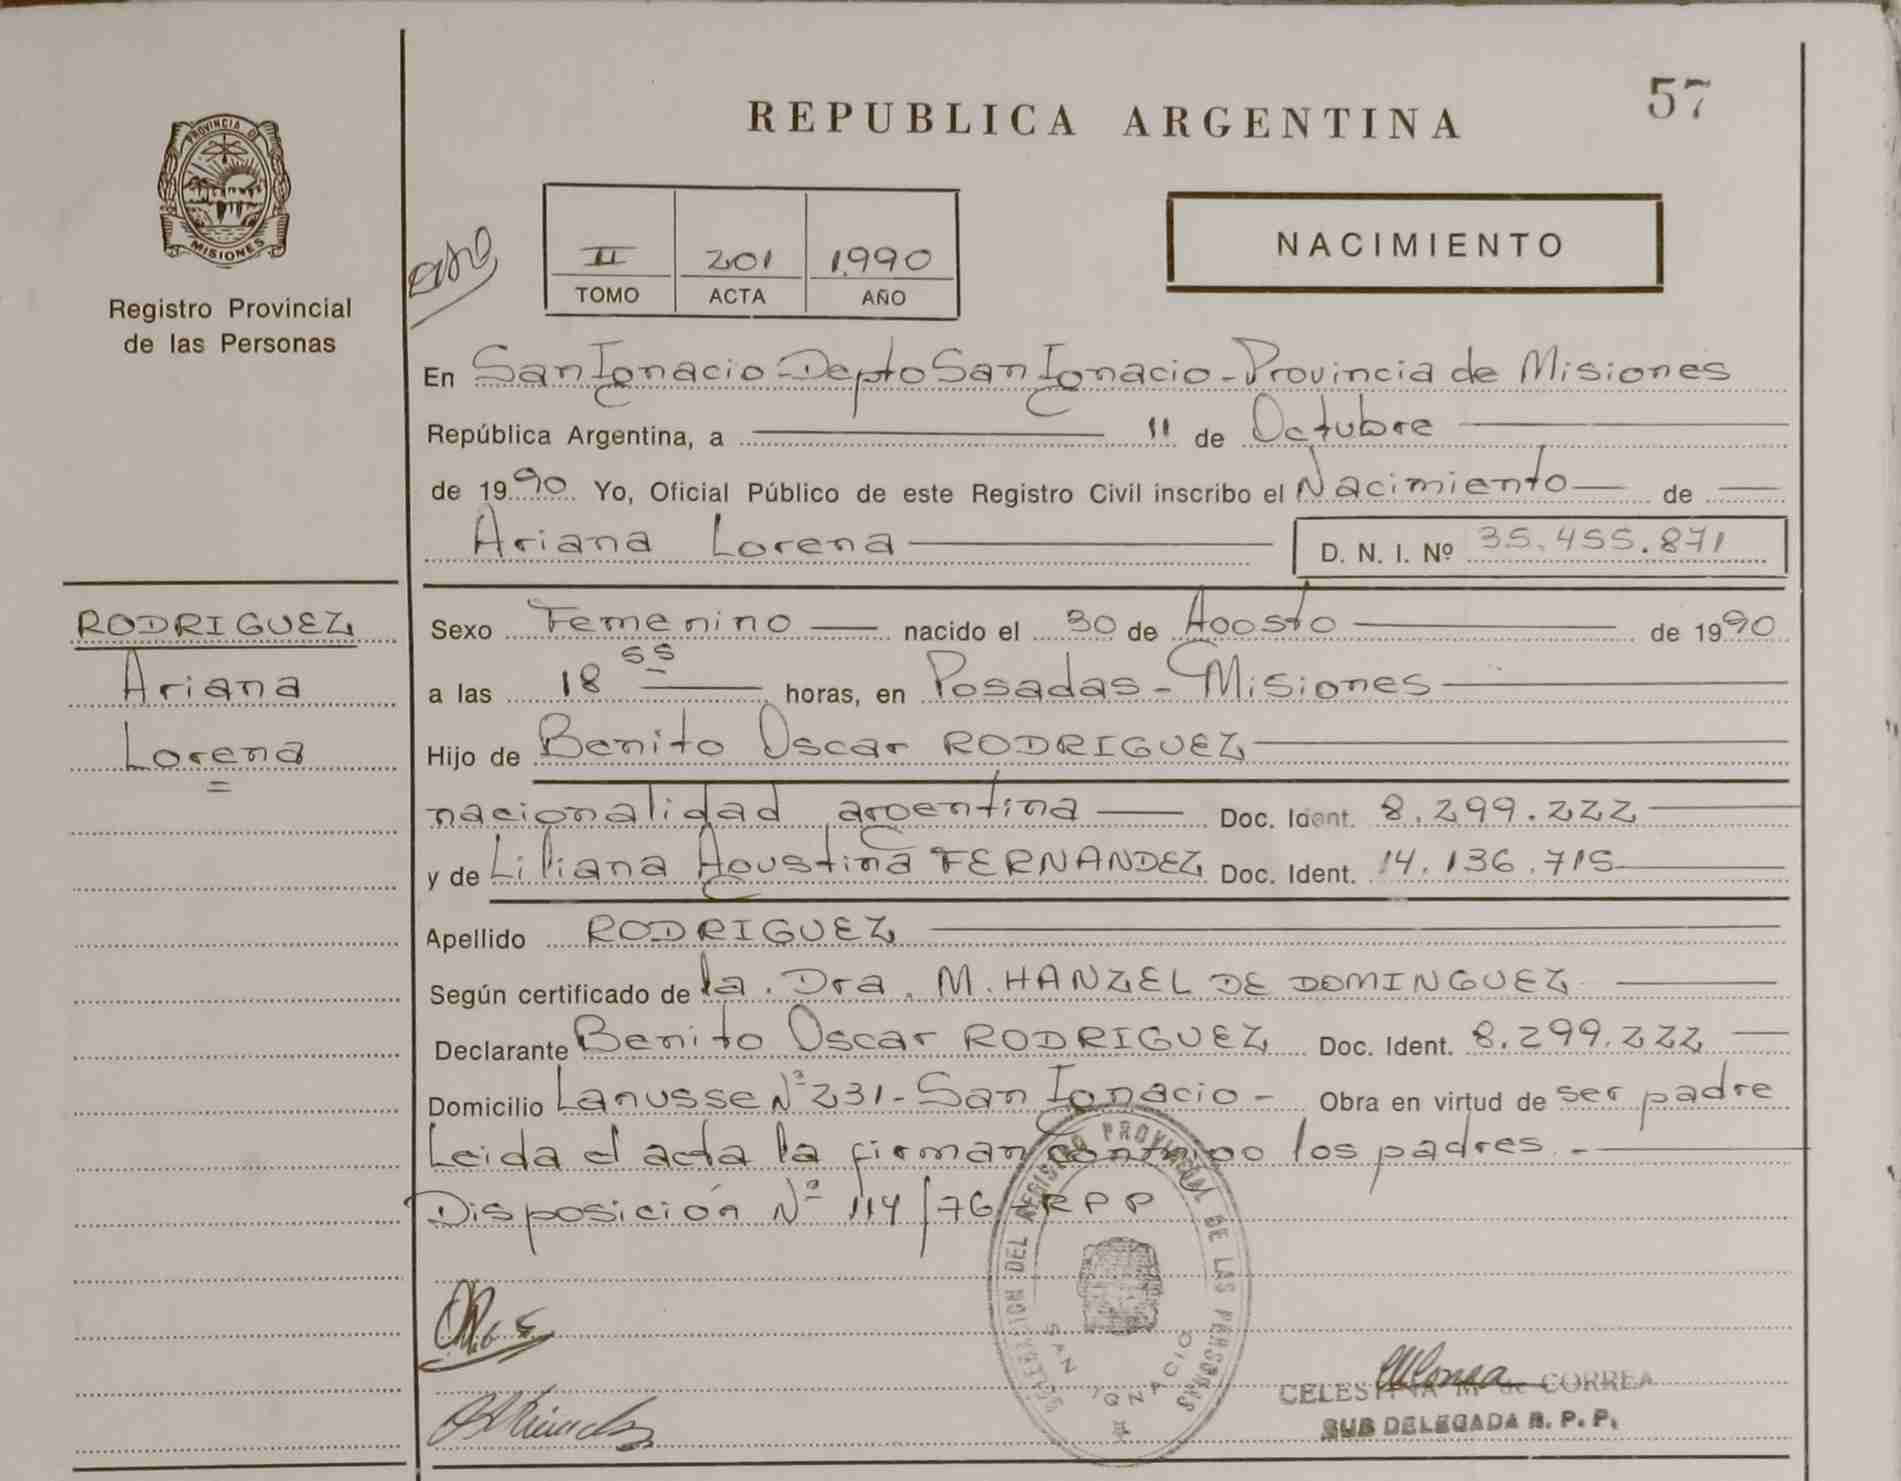 57
REPUBLICA ARGENTINA
PROVINCIA DE
MISIONES
Registro Provincial
de las Personas
II 201 1.990
TOMO ACTA AÑO
NACIMIENTO
En San Ignacio - Depto San Ignacio - Provincia de Misiones
República Argentina, a 11 de Octubre
de 1990 Yo, Oficial Público de este Registro Civil inscribo el Nacimiento de
Ariana Lorena D. N. I. Nº 35.455.871
RODRIGUEZ
Ariana
Lorena
Sexo Femenino nacido el 30 de Agosto de 1990
a las 18 55 horas, en Posadas - Misiones
Hijo de Benito Oscar RODRIGUEZ
nacionalidad argentina Doc. Ident. 8.299.222
y de Liliana Agustina FERNANDEZ Doc. Ident. 14.136.715
Apellido RODRIGUEZ
Según certificado de la. Dra. M. HANZEL DE DOMINGUEZ
Declarante Benito Oscar RODRIGUEZ Doc. Ident. 8.299.222
Domicilio Lanusse Nº 231 - San Ignacio - Obra en virtud de ser padre
Leida el acta la firman conmigo los padres. -
Disposición Nº 114/76 - RPP
DELEGACION DEL REGISTRO PROVINCIAL DE LAS PERSONAS
SAN IGNACIO
CELESTINA M. de CORREA
SUB DELEGADA R. P. P.